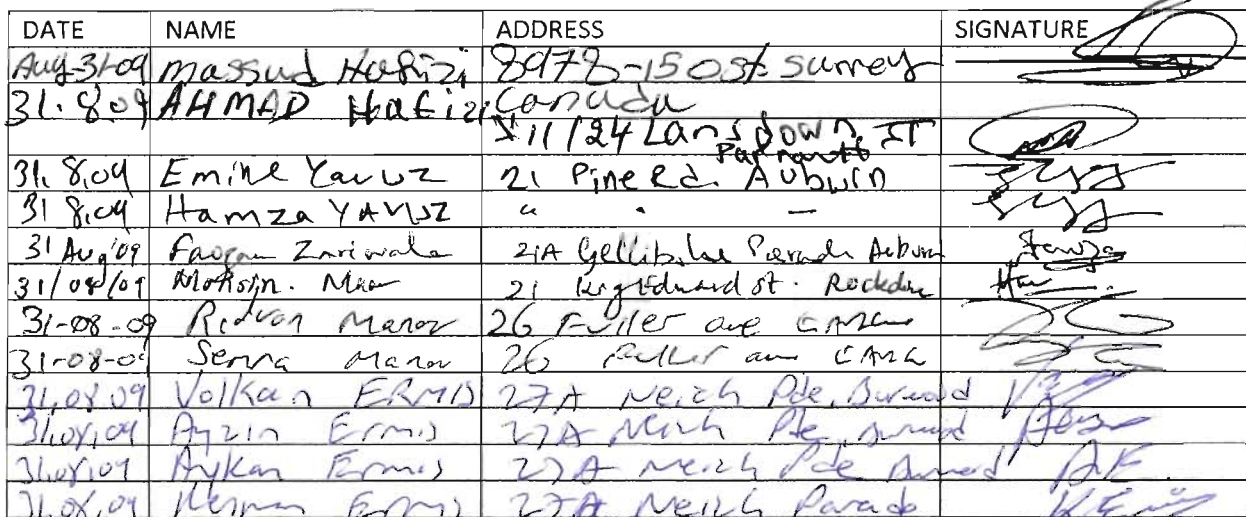 DATE NAME ADDRESS SIGNATURE
Aug-31-09 massud Hafizi 8978-150st surrey
31.8.09 AHMAD Hafizi Canada
11/24 Lansdown ST
Parramatta
31.8.09 Emine Yavuz 21 Pine Rd. Auburn
31 8.09 Hamza YAVUZ " " —
31 Aug'09 Zariwala 21A Parade Auburn
31/08/09 Mohsin. 21 King Edward st. Rockdale
31-08-09 Ridvan Manav 26 Fuller ave
31-08-09 Semra Manav 26 Fuller ave
31.08.09 Volkan ERMIS 27A Neich Pde, Burwood
31.08.09 Ayzin Ermis 27A Neich Pde, Burwood
31.08.09 Aykan Ermis 27A Neich Pde Burwood A.E.
31.08.09 Ermis 27A Neich Parade